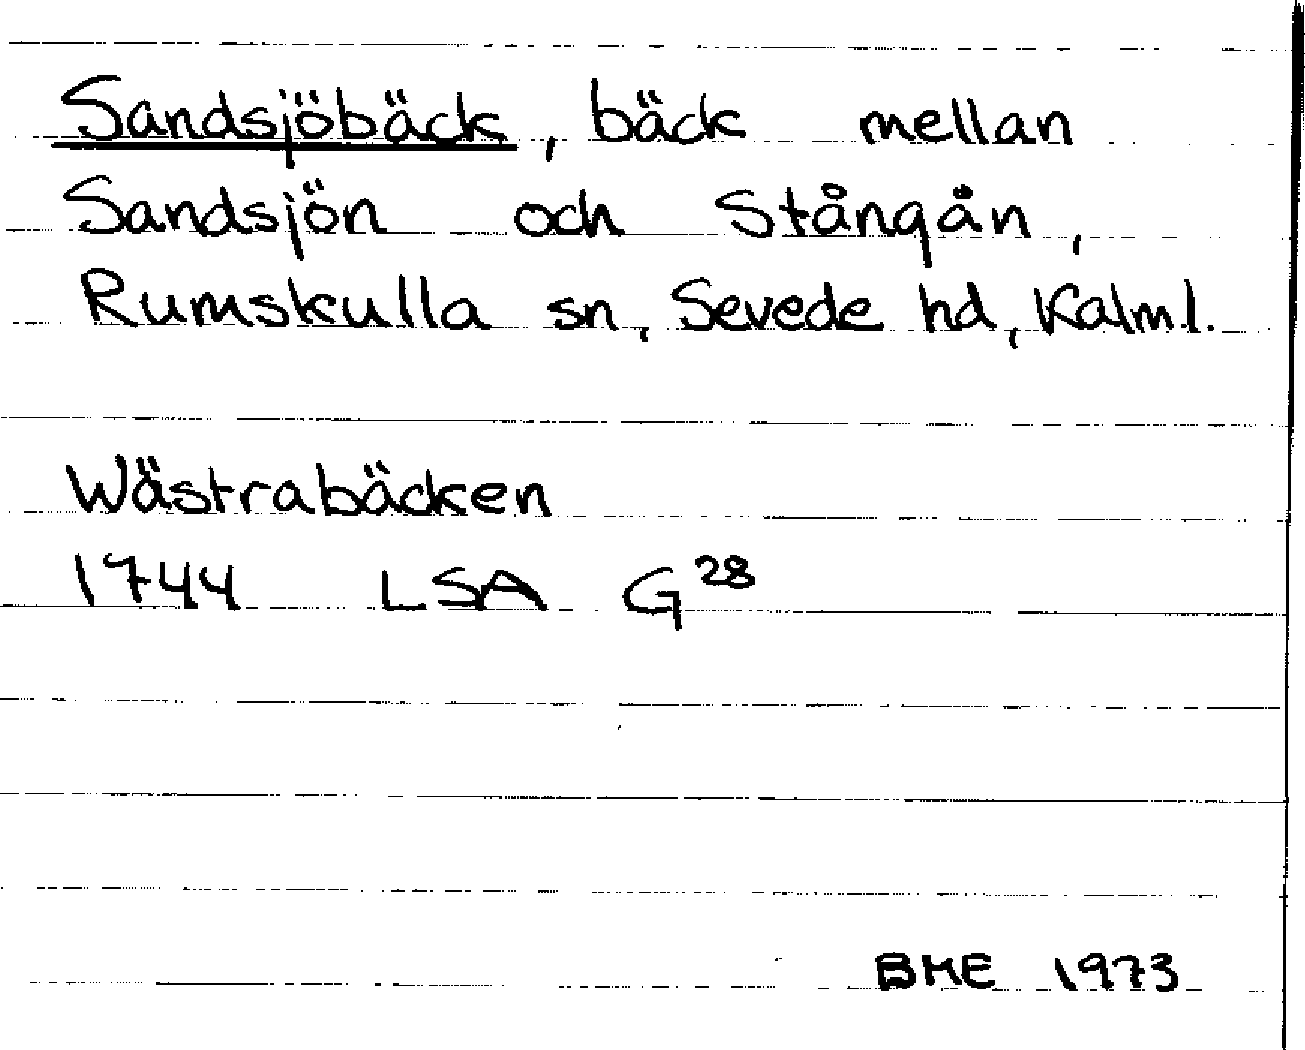 Sandsjöbäck, bäck mellan
Sandsjön och Stångån,
Rumskulla sn, Sevede hd, Kalm l.
Wästrabäcken
1744 LSA G²⁸
BME 1973